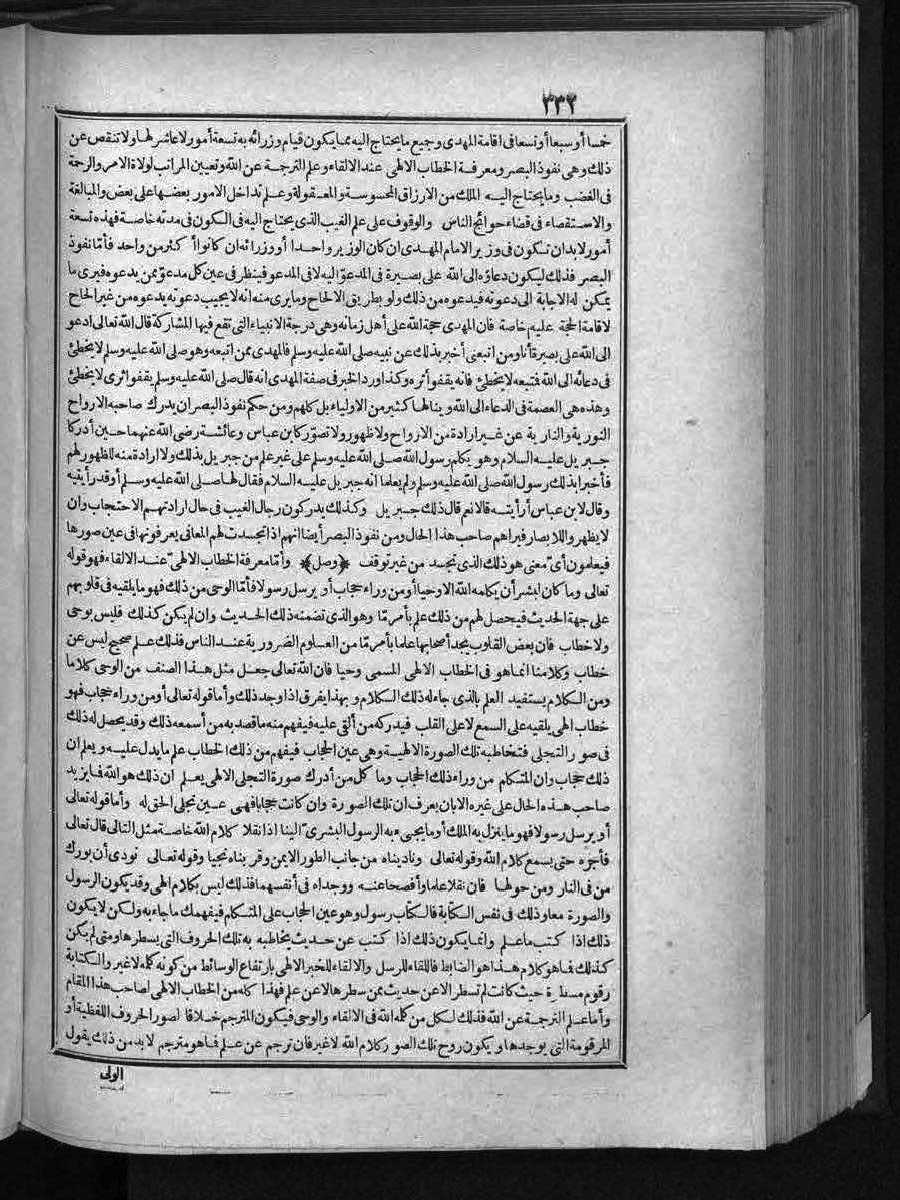 ٣٣٢
خمسا أو سبعا أو تسعا فى اقامة المهدى وجميع ما يحتاج اليه مما يكون قيام وزرائه به تسعة أمور لا عاشر لها ولا تنقص عن
ذلك وهى نفوذ البصر ومعرفة الخطاب الالهى عند الالقاء وعلم الترجمة عن الله وتعيين المراتب لولاة الامر والرحمة
فى الغضب وما يحتاج اليه الملك من الارزاق المحسوسة والمعقولة وعلم تداخل الامور بعضها على بعض والمبالغة
والاستقصاء فى قضاء حوائج الناس والوقوف على علم الغيب الذى يحتاج اليه فى الكون فى مدته خاصة فهذه تسعة
أمور لابد ان تكون فى وزير الامام المهدى ان كان الوزير واحدا أو وزرائه ان كانوا أكثر من واحد فأما نفوذ
البصر فذلك ليكون دعاؤه الى الله على بصيرة فى المدعو اليه لا فى المدعو فينظر فى عين كل مدعو ممن يدعوه فيرى ما
يمكن له الاجابة الى دعوته فيدعوه من ذلك ولو بطريق الالحاح وما يرى منه انه لا يجيب دعوته يدعوه من غير الحاح
لاقامة الحجة عليه خاصة فان المهدى حجة الله على أهل زمانه وهى درجة الانبياء التى تقع فيها المشاركة قال الله تعالى ادعو
الى الله على بصيرة أنا ومن اتبعنى أخبر بذلك عن نبيه صلى الله عليه وسلم فالمهدى ممن اتبعه وهو صلى الله عليه وسلم لا يخطئ
فى دعائه الى الله فتبعه لا يخطئ فانه يقفو أثره وكذا ورد الخبر فى صفة المهدى انه قال صلى الله عليه وسلم يقفو أثرى لا يخطئ
وهذه هى العصمة فى الدعاء الى الله وينالها كثير من الاولياء بل كلهم ومن حكم نفوذ البصر ان يدرك صاحبه الارواح
النورية والنارية عن غير ارادة من الارواح ولا ظهور ولا تصور كابن عباس وعائشة رضى الله عنهما حين أدركا
جبريل عليه السلام وهو يكلم رسول الله صلى الله عليه وسلم على غير علم من جبريل بذلك ولا ارادة منه للظهور لهم
فأخبرا بذلك رسول الله صلى الله عليه وسلم ولم يعلما انه جبريل عليه السلام فقال لها صلى الله عليه وسلم أو قد رأيتيه
وقال لابن عباس أرأيته قالا نعم قال ذلك جبريل وكذلك يدركون رجال الغيب فى حال ارادتهم الاحتجاب وان
لا يظهروا للابصار فيراهم صاحب هذا الحال ومن نفوذ البصر أيضا انهم اذا تجسدت لهم المعانى يعرفونها فى عين صورها
فيعلمون أى معنى هو ذلك الذى تجسد من غير توقف ﴿وصل﴾ وأما معرفة الخطاب الالهى عند الالقاء فهو قوله
تعالى وما كان لبشر أن يكلمه الله الا وحيا أو من وراء حجاب أو يرسل رسولا فأما الوحى من ذلك فهو ما يلقيه فى قلوبهم
على جهة الحديث فيحصل لهم من ذلك علم بأمر ما وهو الذى تضمنه ذلك الحديث وان لم يكن كذلك فليس بوحى
ولا خطاب فان بعض القلوب يجد أصحابها علما بأمر ما من العلوم الضرورية عند الناس فذلك علم صحيح ليس عن
خطاب وكلامنا انما هو فى الخطاب الالهى المسمى وحيا فان الله تعالى جعل مثل هذا الصنف من الوحى كلاما
ومن الكلام يستفيد العلم بالذى جاء له ذلك الكلام وبهذا يفرق اذا وجد ذلك وأما قوله تعالى أو من وراء حجاب فهو
خطاب الهى يلقيه على السمع لا على القلب فيدركه من ألقى عليه فيفهم منه ما قصد به من أسمعه ذلك وقد يحصل له ذلك
فى صور التجلى فتخاطبه تلك الصورة الالهية وهى عين الحجاب فيفهم من ذلك الخطاب علم ما يدل عليه ويعلم ان
ذلك حجاب وان المتكلم من وراء ذلك الحجاب وما كل من أدرك صورة التجلى الالهى يعلم ان ذلك هو الله فما يزيد
صاحب هذه الحال على غيره الا بان يعرف ان تلك الصورة وان كانت حجابا فهى عين تجلى الحق له وأما قوله تعالى
أو يرسل رسولا فهو ما ينزل به الملك أو ما يجىء به الرسول البشرى الينا اذا نقلا كلام الله خاصة مثل التالى قال تعالى
فأجره حتى يسمع كلام الله وقوله تعالى وناديناه من جانب الطور الايمن وقربناه نجيا وقوله تعالى نودى أن بورك
من فى النار ومن حولها فان نقلا علما وأفصحا عنه ووجداه فى أنفسهما فذلك ليس بكلام الهى وقد يكون الرسول
والصورة معا وذلك فى نفس الكتابة فالكتاب رسول وهو عين الحجاب على المتكلم فيفهمك ما جاء به ولكن لا يكون
ذلك اذا كتب ما علم وانما يكون ذلك اذا كتب عن حديث يخاطبه به تلك الحروف التى يسطرها ومتى لم يكن
كذلك فما هو كلام هذا هو الضابط فاللقاء للرسل والالقاء للخبر الالهى بارتفاع الوسائط من كونه كلمه لا غير والكتابة
رقوم مسطرة حيث كانت لم تسطر الا عن حديث ممن سطرها لا عن علم فهذا كله من الخطاب الالهى لصاحب هذا المقام
وأما علم الترجمة عن الله فذلك لكل من كلمه الله فى الالقاء والوحى فيكون المترجم خلاقا لصور الحروف اللفظية أو
المرقومة التى يوجدها ويكون روح تلك الصور كلام الله لا غير فان ترجم عن علم فما هو مترجم لا بد من ذلك يقول
الولى